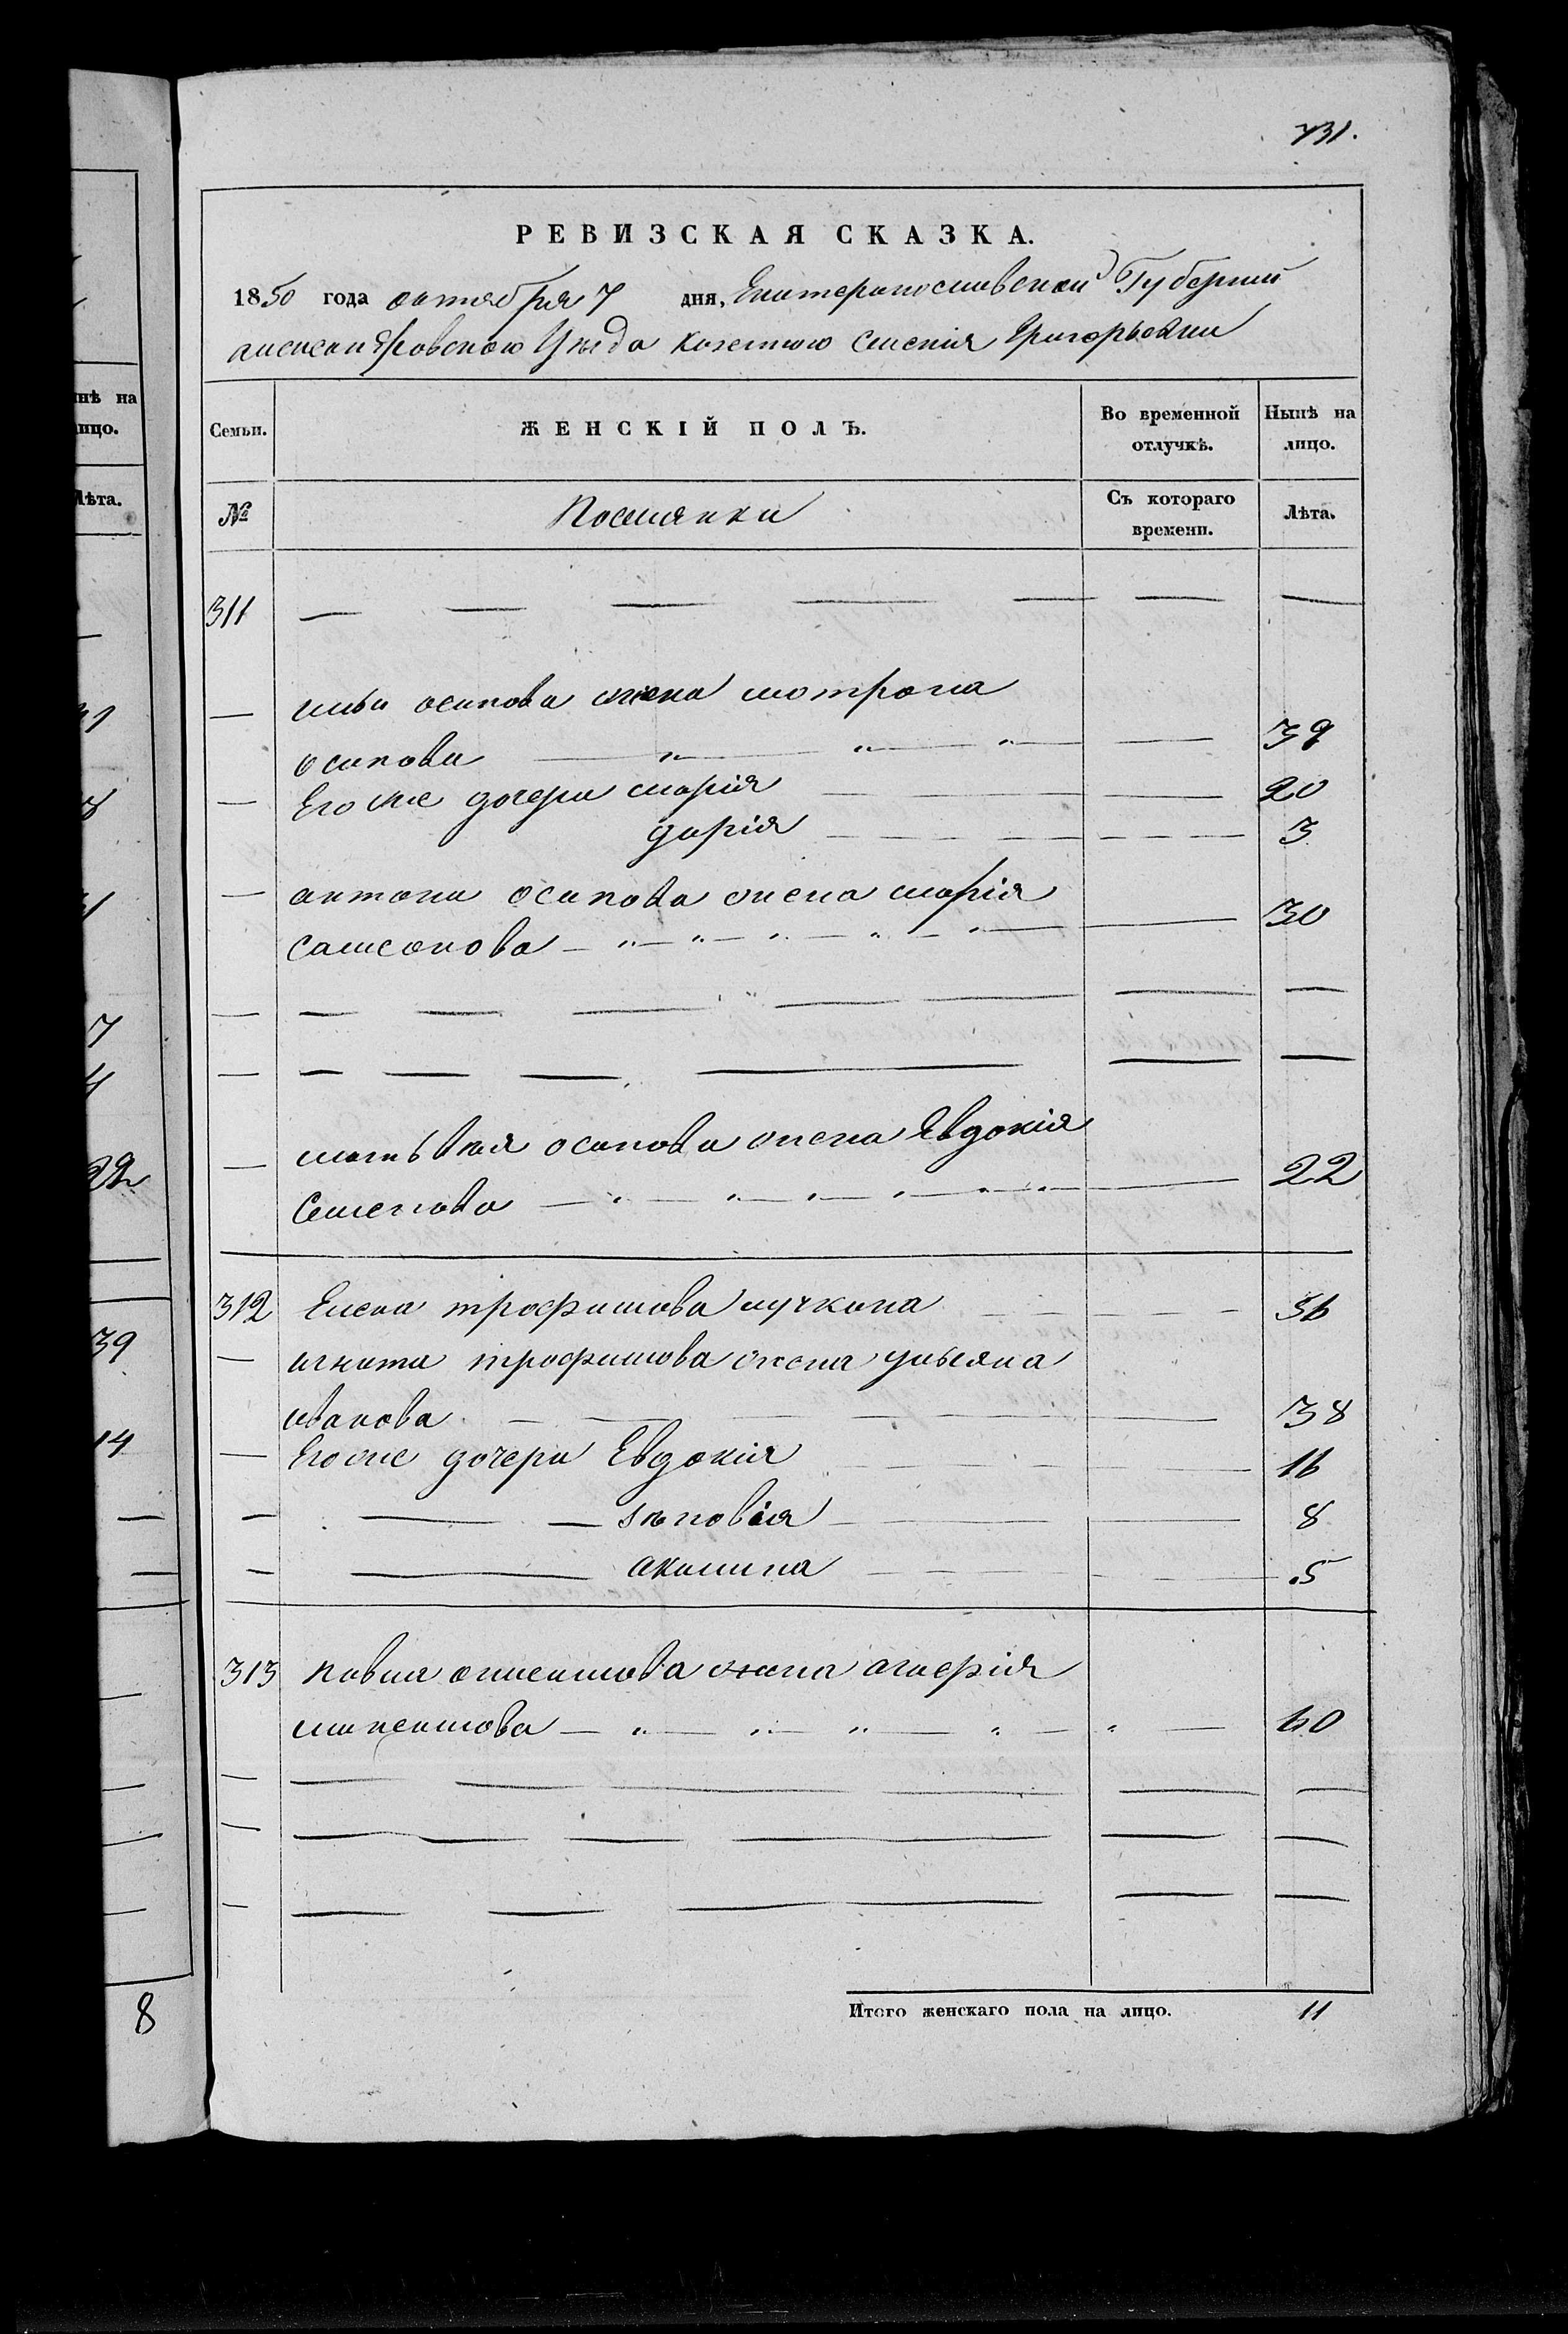 731.
РЕВИЗСКАЯ СКАЗКА.
1850 года октября 7 дня, Екатеринославской Губернии
александровского Уезда казенного селения Григорьевки
нѣ на
лицо.
Лѣта.
Семьи. ЖЕНСКІЙ ПОЛЪ. Во временной отлучкѣ. Нынѣ на лицо.
№ Поселянки Съ котораго времени. Лѣта.
311 — — — — — — —
— ильи осипова жена мотрона
осипова — „ — „ — „ — — 39
— Его же дочери марія — — 20
дарія — — — 3
— антона осипова жена марія
самсонова — „ — „ — „ — „ — „ — 30
— — — — — — — —
— — — — — — —
— матвѣя осипова жена Евдокія
Семенова — „ — „ — „ — „ — „ — „ — 22
312 Елена трофимова лучкина — — — 36
— игната трофимова жена ульяна
иванова — — — — — 38
— Его же дочери Евдокія — — 16
— — — зѣновія — — — 8
— — акилина — — — 5
313 павла жена
— „ — „ — „ — „ — „ — 60
— — — — — — —
— — — — — — —
— — — — — — —
Итого женскаго пола на лицо. 11
29
39
14
8